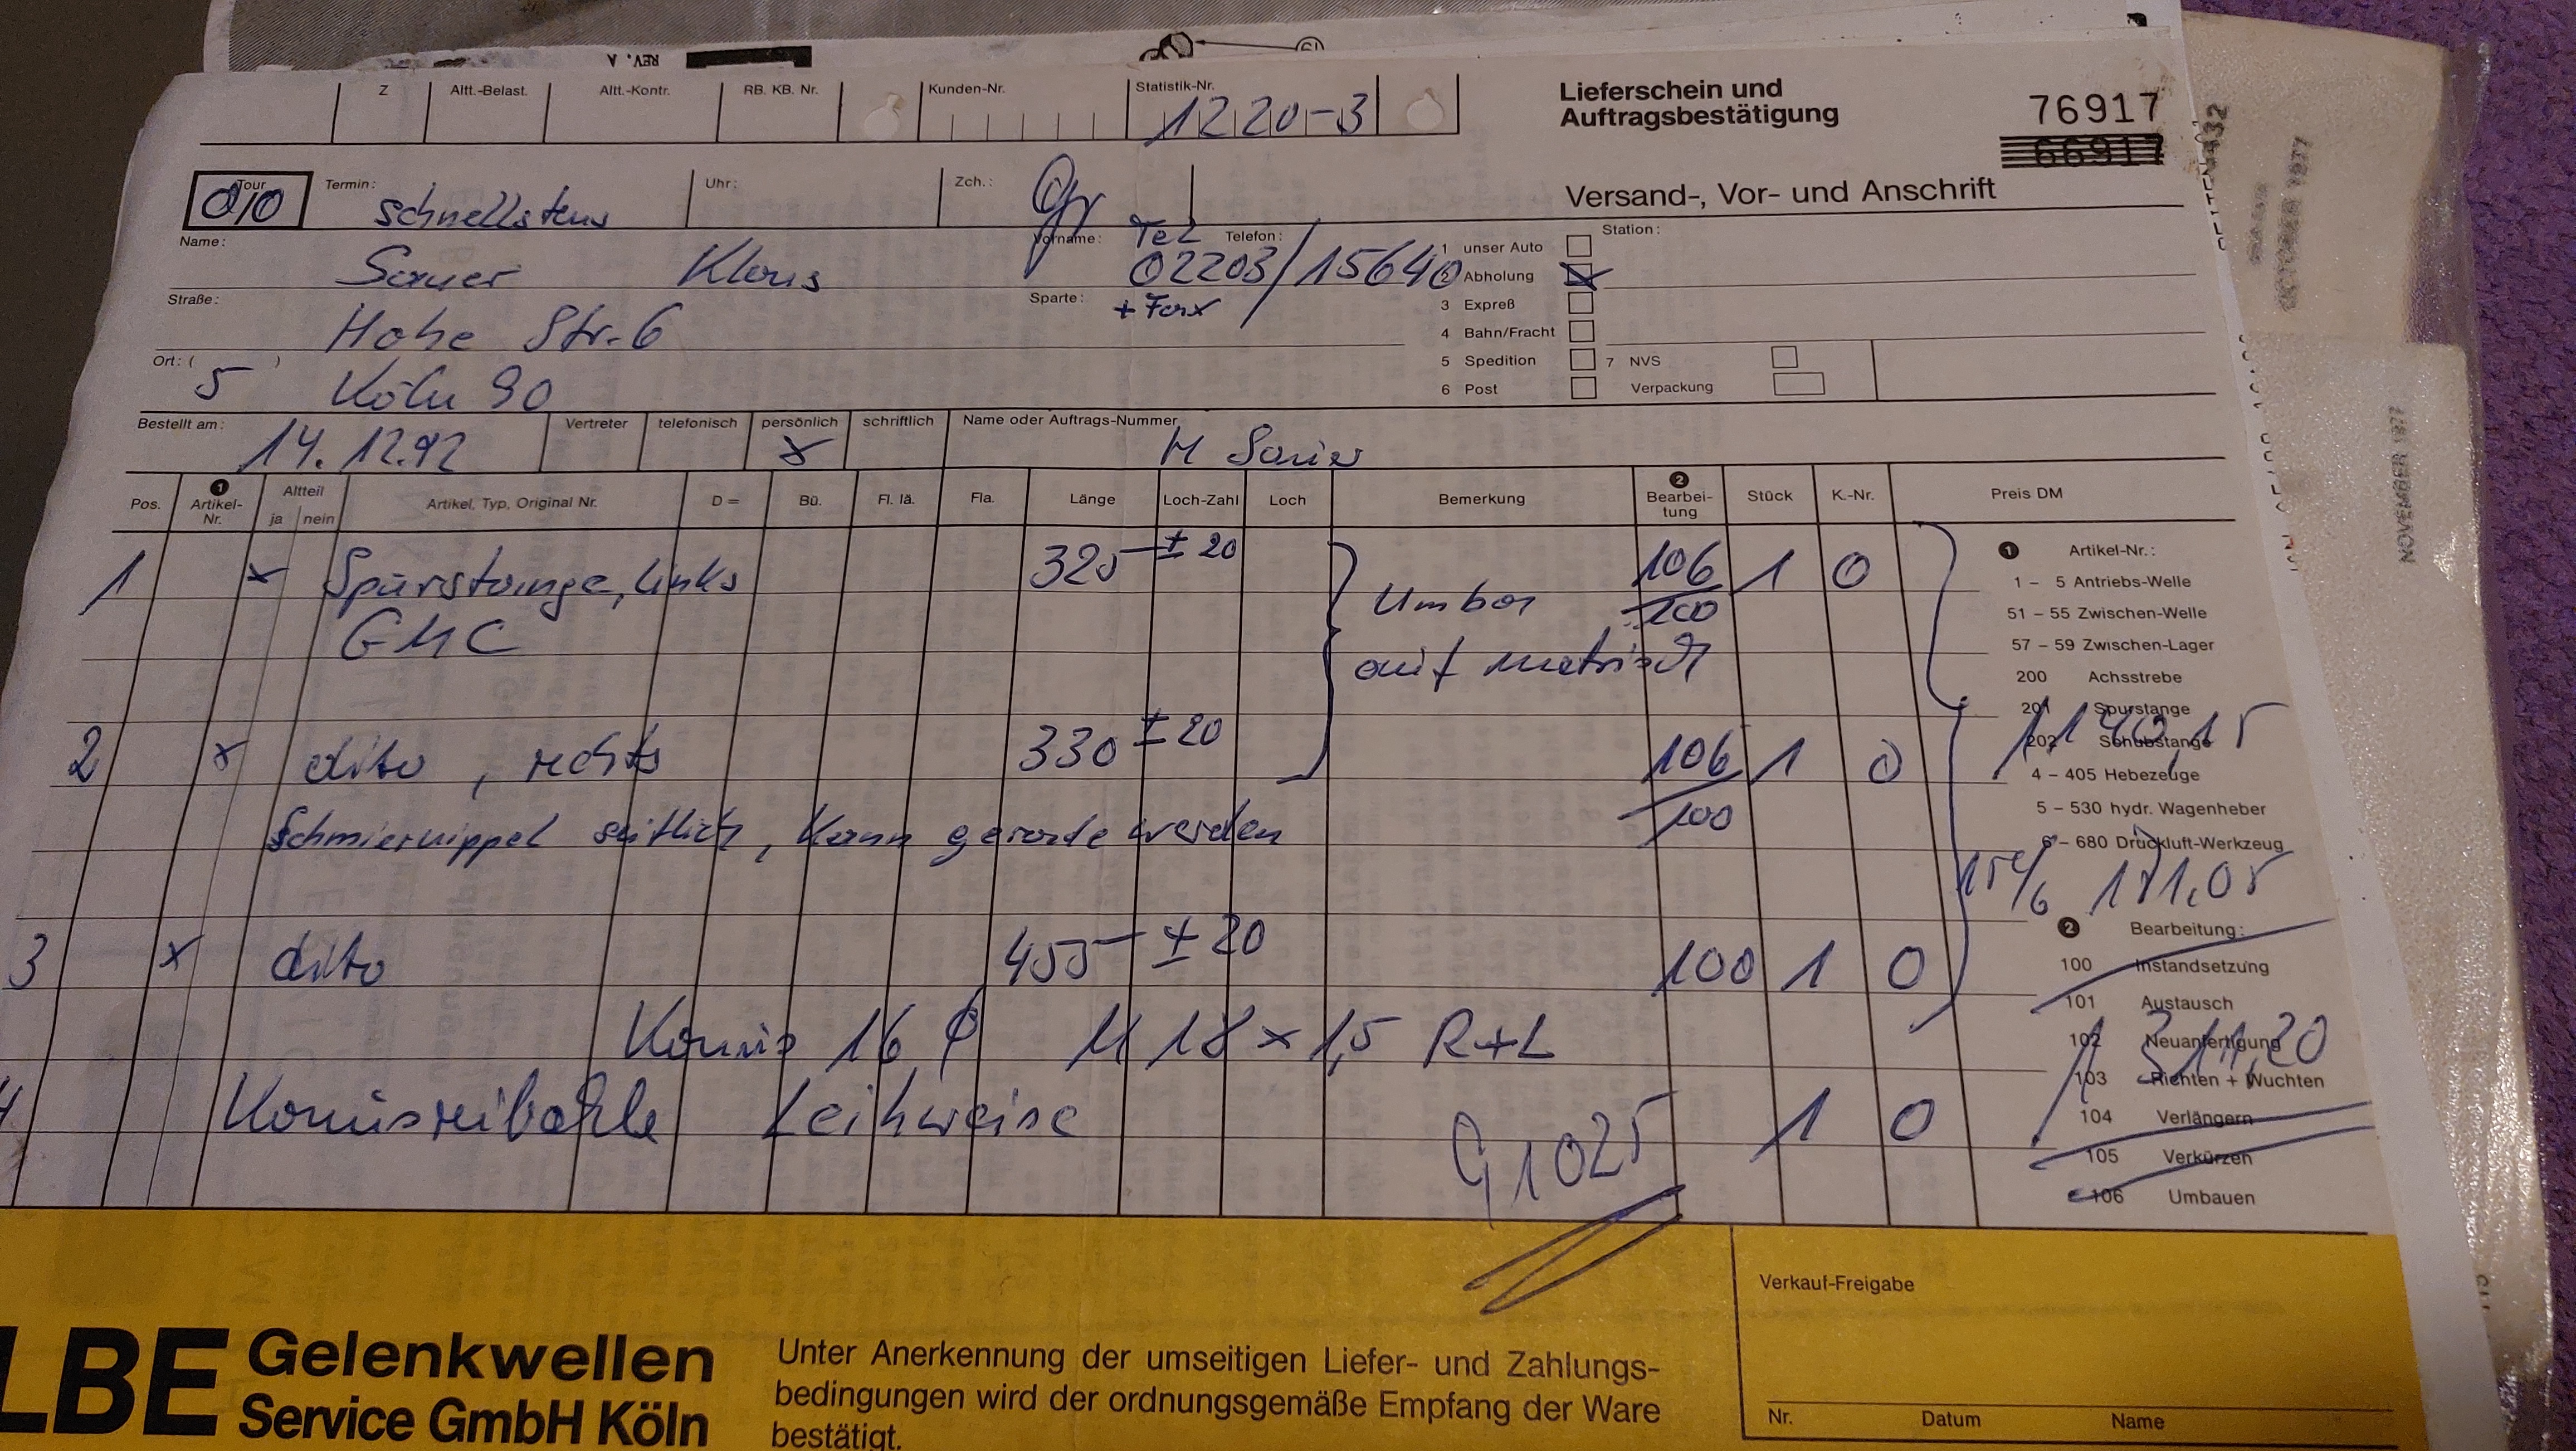 REV. A
Z Altt.-Belast. Altt.-Kontr. RB. KB. Nr. Kunden-Nr. Statistik-Nr.
1220-3
Lieferschein und
Auftragsbestätigung
76917
66917
Versand-, Vor- und Anschrift
Tour Termin: schnellstens Uhr: Zch.:
Name: Sauer Klaus Vorname: Tel Telefon:
02203/15640
Straße: Hohe Str. 6 Sparte: + Fax
Ort: ( ) 5 Köln 90
1 unser Auto Station:
2 Abholung
3 Expreß
4 Bahn/Fracht
5 Spedition 7 NVS
6 Post Verpackung
Bestellt am: 14.12.92 Vertreter telefonisch persönlich x schriftlich Name oder Auftrags-Nummer H Sauer
Pos. 1 Artikel-Nr. Altteil ja nein Artikel, Typ, Original Nr. D = Bü. Fl. lä. Fla. Länge Loch-Zahl Loch Bemerkung 2 Bearbei-tung Stück K.-Nr. Preis DM
1 x Spurstange, links 325 ± 20 Umbau 106/100 1 0
GMC auf metrisch
2 x dito, rechts 330 ± 20 106/100 1 0
Schmiernippel seitlich, kann gerade werden
3 x dito 455 ± 20 100 1 0
Konus 16 ϕ M 18 x 1,5 R+L
4 Konusreibahle Leihweise 1 0
1 Artikel-Nr.:
1 – 5 Antriebs-Welle
51 – 55 Zwischen-Welle
57 – 59 Zwischen-Lager
200 Achsstrebe
201 Spurstange
202 Schubstange
1140,15
4 – 405 Hebezeuge
5 – 530 hydr. Wagenheber
6 – 680 Druckluft-Werkzeug
15% 171,05
2 Bearbeitung:
100 Instandsetzung
101 Austausch
102 Neuanfertigung
1311,20
103 Richten + Wuchten
104 Verlängern
105 Verkürzen
106 Umbauen
LBE Gelenkwellen
Service GmbH Köln
Unter Anerkennung der umseitigen Liefer- und Zahlungs-
bedingungen wird der ordnungsgemäße Empfang der Ware
bestätigt.
Verkauf-Freigabe
Nr. Datum Name
OCTOBER 1977
NOVEMBER 1977